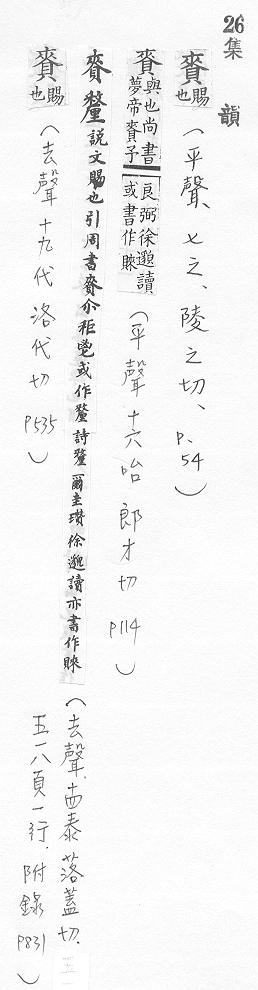 26 集韻
賚 賜也 (平聲、七之、陵之切、P.54)
賚 與也尚書夢帝賚予良弼徐邈讀或書作睞 (平聲十六咍 郎才切 P114)
賚 釐 說文賜也引周書賚尒秬鬯或作釐詩釐爾圭瓚徐邈讀亦書作睞 (去聲.十四泰落蓋切.
五一八頁一行.附錄 P831)
賚 賜也 (去聲十九代 洛代切 P535)